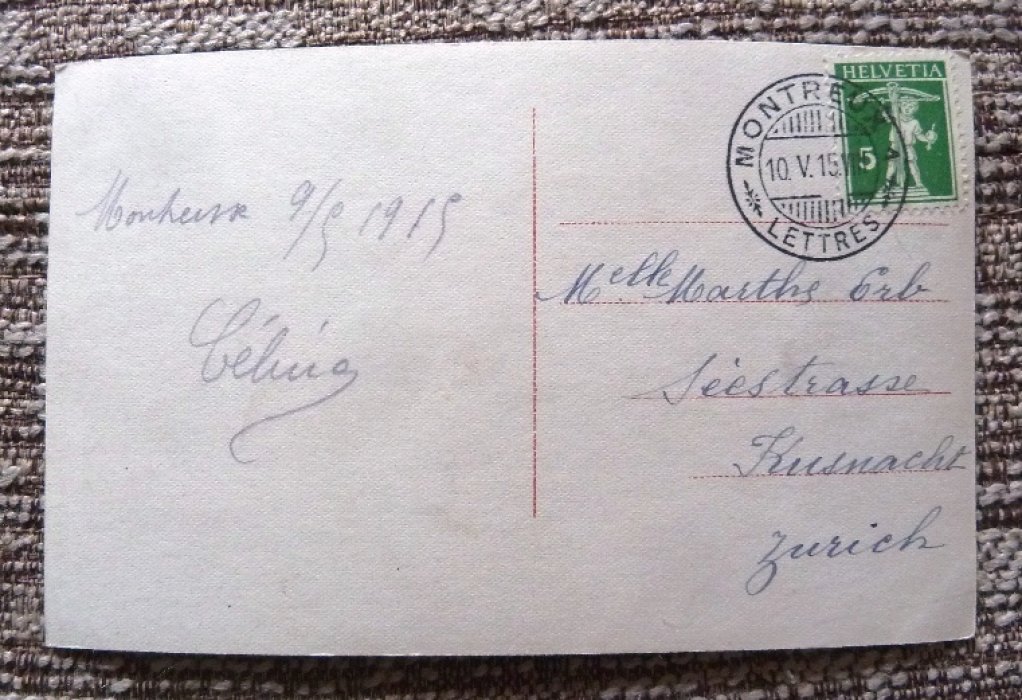 HELVETIA
5
MONTREUX
10. V. 15.
LETTRES
Montreux 9/5 1915
Céline
Melle Marthe Erb
Séestrasse
Kusnacht
Zurich